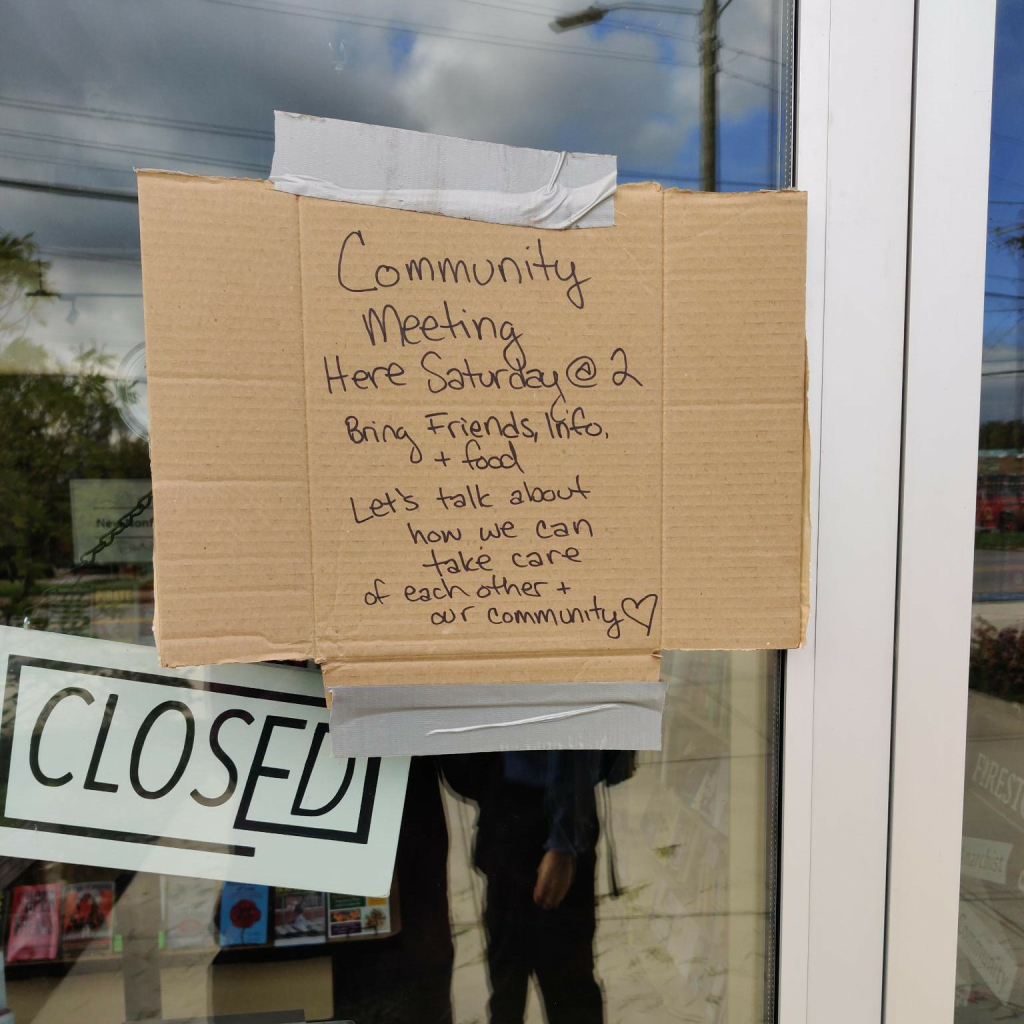 Community
Meeting
Here Saturday @ 2
Bring Friends, Info,
+ food
Let's talk about
how we can
take care
of each other +
our community ♡
CLOSED